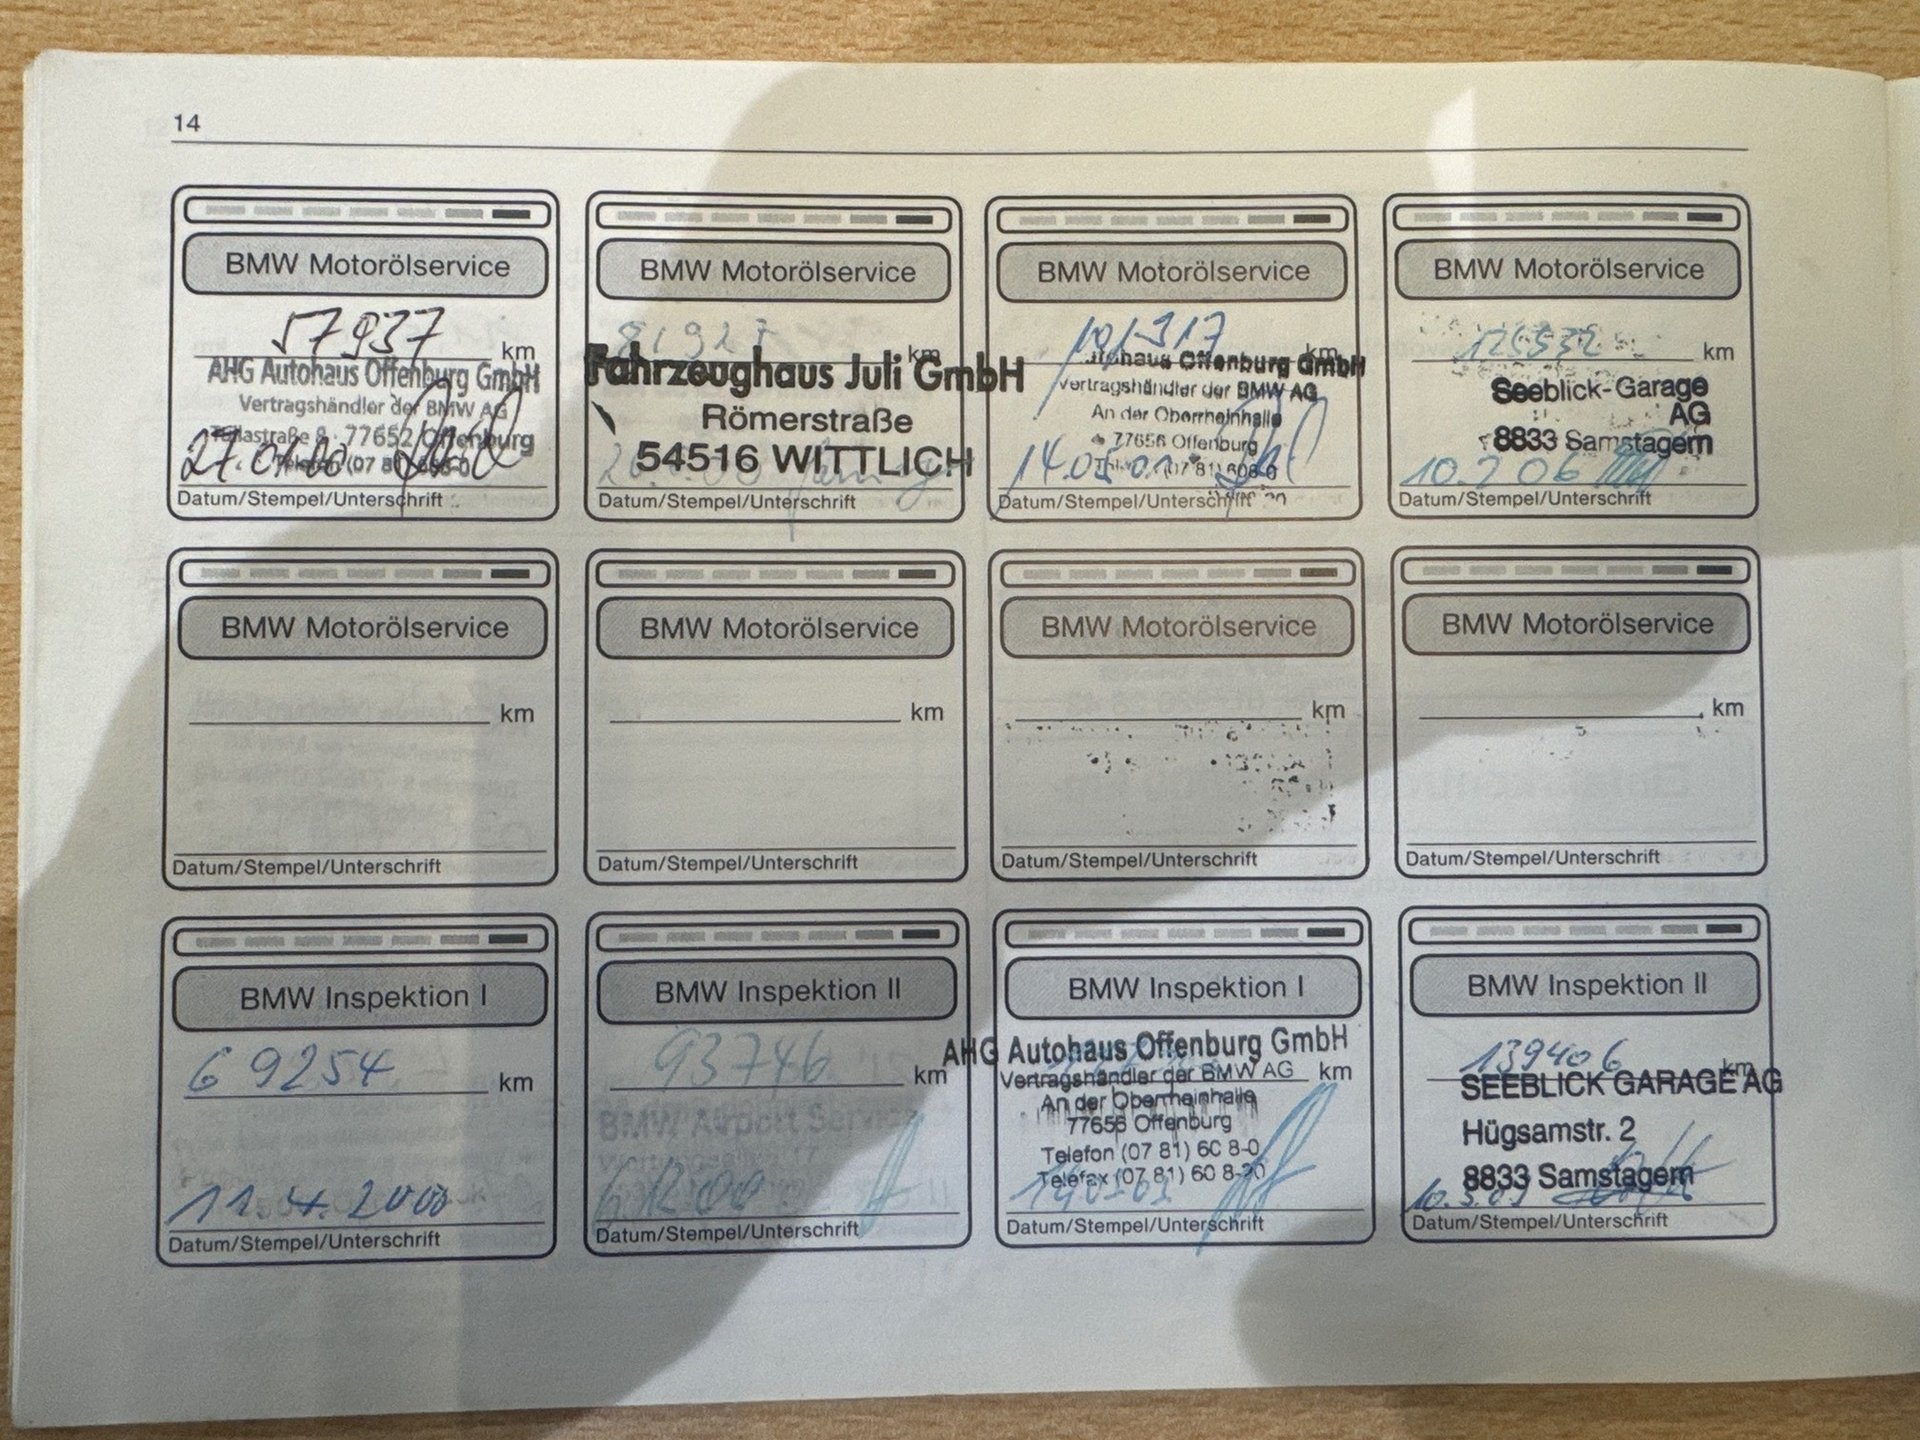 14
BMW Motorölservice
57937 km
AHG Autohaus Offenburg GmbH
Vertragshändler der BMW AG
77652 Offenburg
27.01.00
Datum/Stempel/Unterschrift
BMW Motorölservice
81927 km
Fahrzeughaus Juli GmbH
Römerstraße
54516 WITTLICH
Datum/Stempel/Unterschrift
BMW Motorölservice
101317 km
Autohaus Offenburg GmbH
Vertragshändler der BMW AG
An der Oberrheinhalle
77656 Offenburg
14.05.01
Datum/Stempel/Unterschrift
BMW Motorölservice
125532 km
Seeblick-Garage
AG
8833 Samstagern
10.7.06
Datum/Stempel/Unterschrift
BMW Motorölservice
km
Datum/Stempel/Unterschrift
BMW Motorölservice
km
Datum/Stempel/Unterschrift
BMW Motorölservice
km
Datum/Stempel/Unterschrift
BMW Motorölservice
km
Datum/Stempel/Unterschrift
BMW Inspektion I
69254 km
11.4.2000
Datum/Stempel/Unterschrift
BMW Inspektion II
93746 km
BMW Airport Service
6.12.00
Datum/Stempel/Unterschrift
BMW Inspektion I
AHG Autohaus Offenburg GmbH
Vertragshändler der BMW AG km
An der Oberrheinhalle
77656 Offenburg
Telefon (07 81) 60 8-0
Telefax (07 81) 60 8-20
Datum/Stempel/Unterschrift
BMW Inspektion II
139406 km
SEEBLICK GARAGE AG
Hügsamstr. 2
8833 Samstagern
Datum/Stempel/Unterschrift